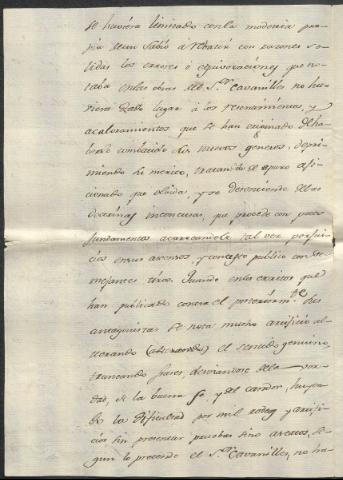 se huviera limitado con la moderia pro-
pia de un Sabio à rebatir con razones so-
lidas los errores ò equivocaciones que no-
taba en las obras del Sr. Cavanilles no hu-
viera dado lugar à los resentimientos, y
acaloramientos que se han originado de ha-
berle combatido los nuevos generos, depri-
miendo su merito, tratandole de puro afi-
cionado que olvida, y se desentiende de las
doctrinas inconcusas, que procede con pocos
fundamentos acarreandole tal vez perjui-
cios en sus ascensos, y concepto publico con se-
mejantes tiros. Quando en los escritos que
han publicado contra el
antagonistas se nota mucho artificio al-
terando (alterando) el sentido genuino,
truncando frases, desviandose de la ver-
dad, de la buena fe, y del candor, huyen-
do la dificultad por mil rodeos y artifi-
cios sin presentar pruebas sino aereas, se-
gun lo procede el Sr. Cavanilles, no ha-